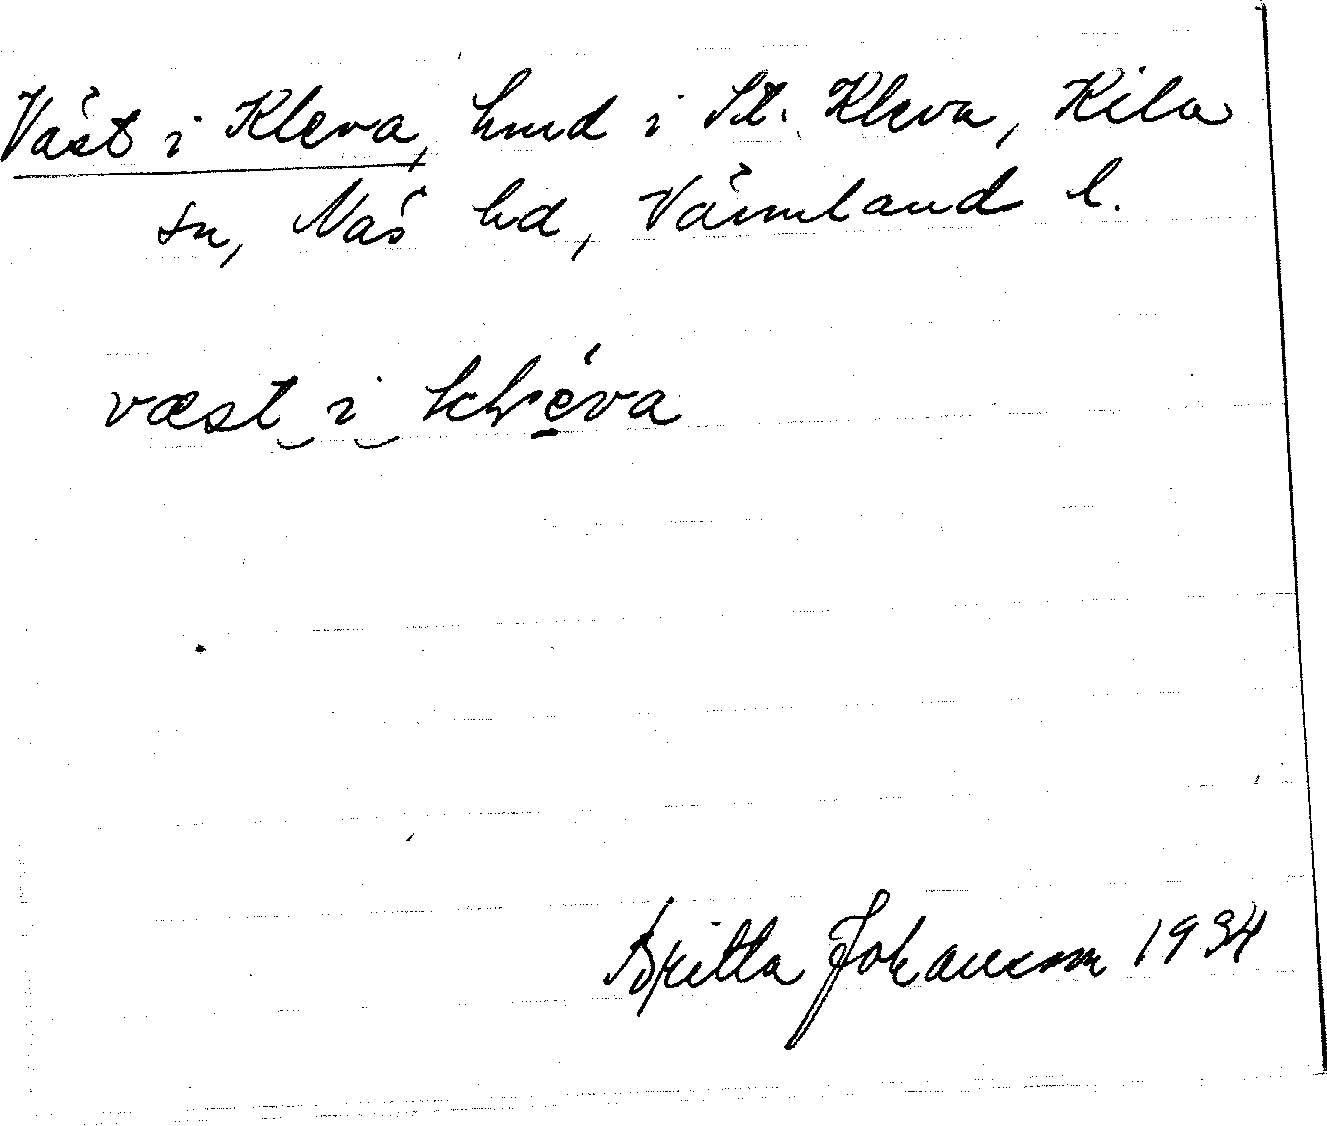 Väst i Kleva, hmd i St. Kleva, Kila
sn, Näs hd, Värmland l.
væst i klèva
Britta Johansson 1934